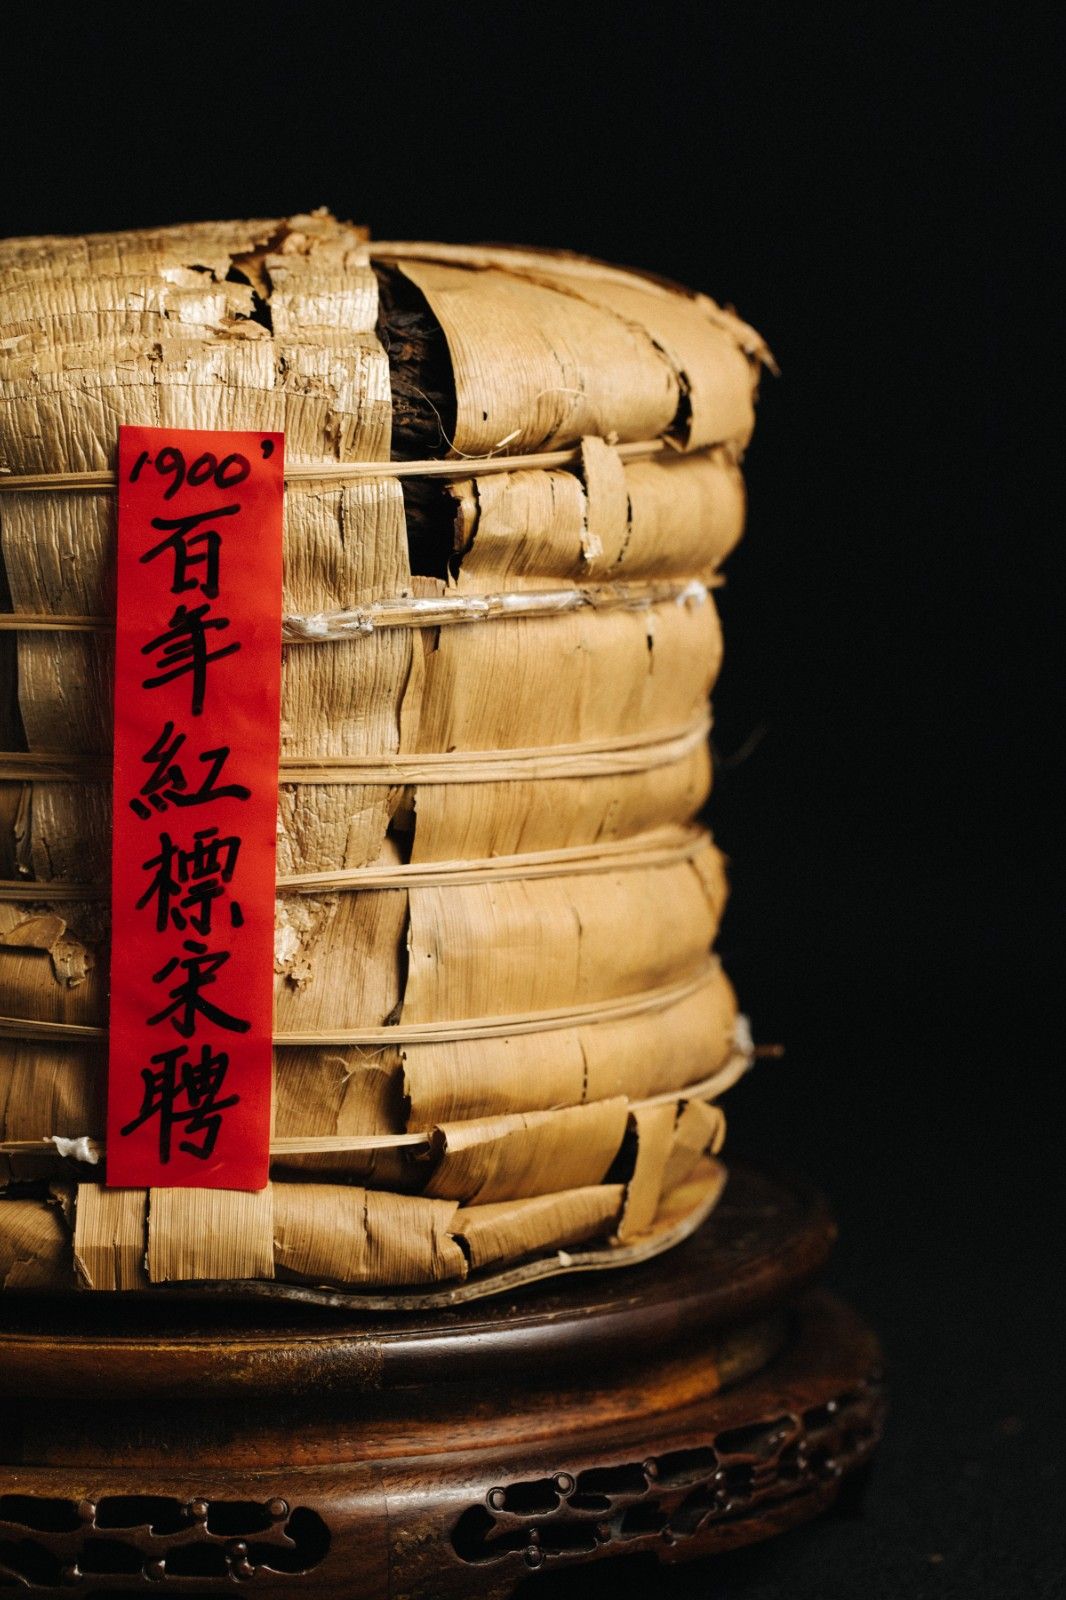 1900'
百年紅標宋聘